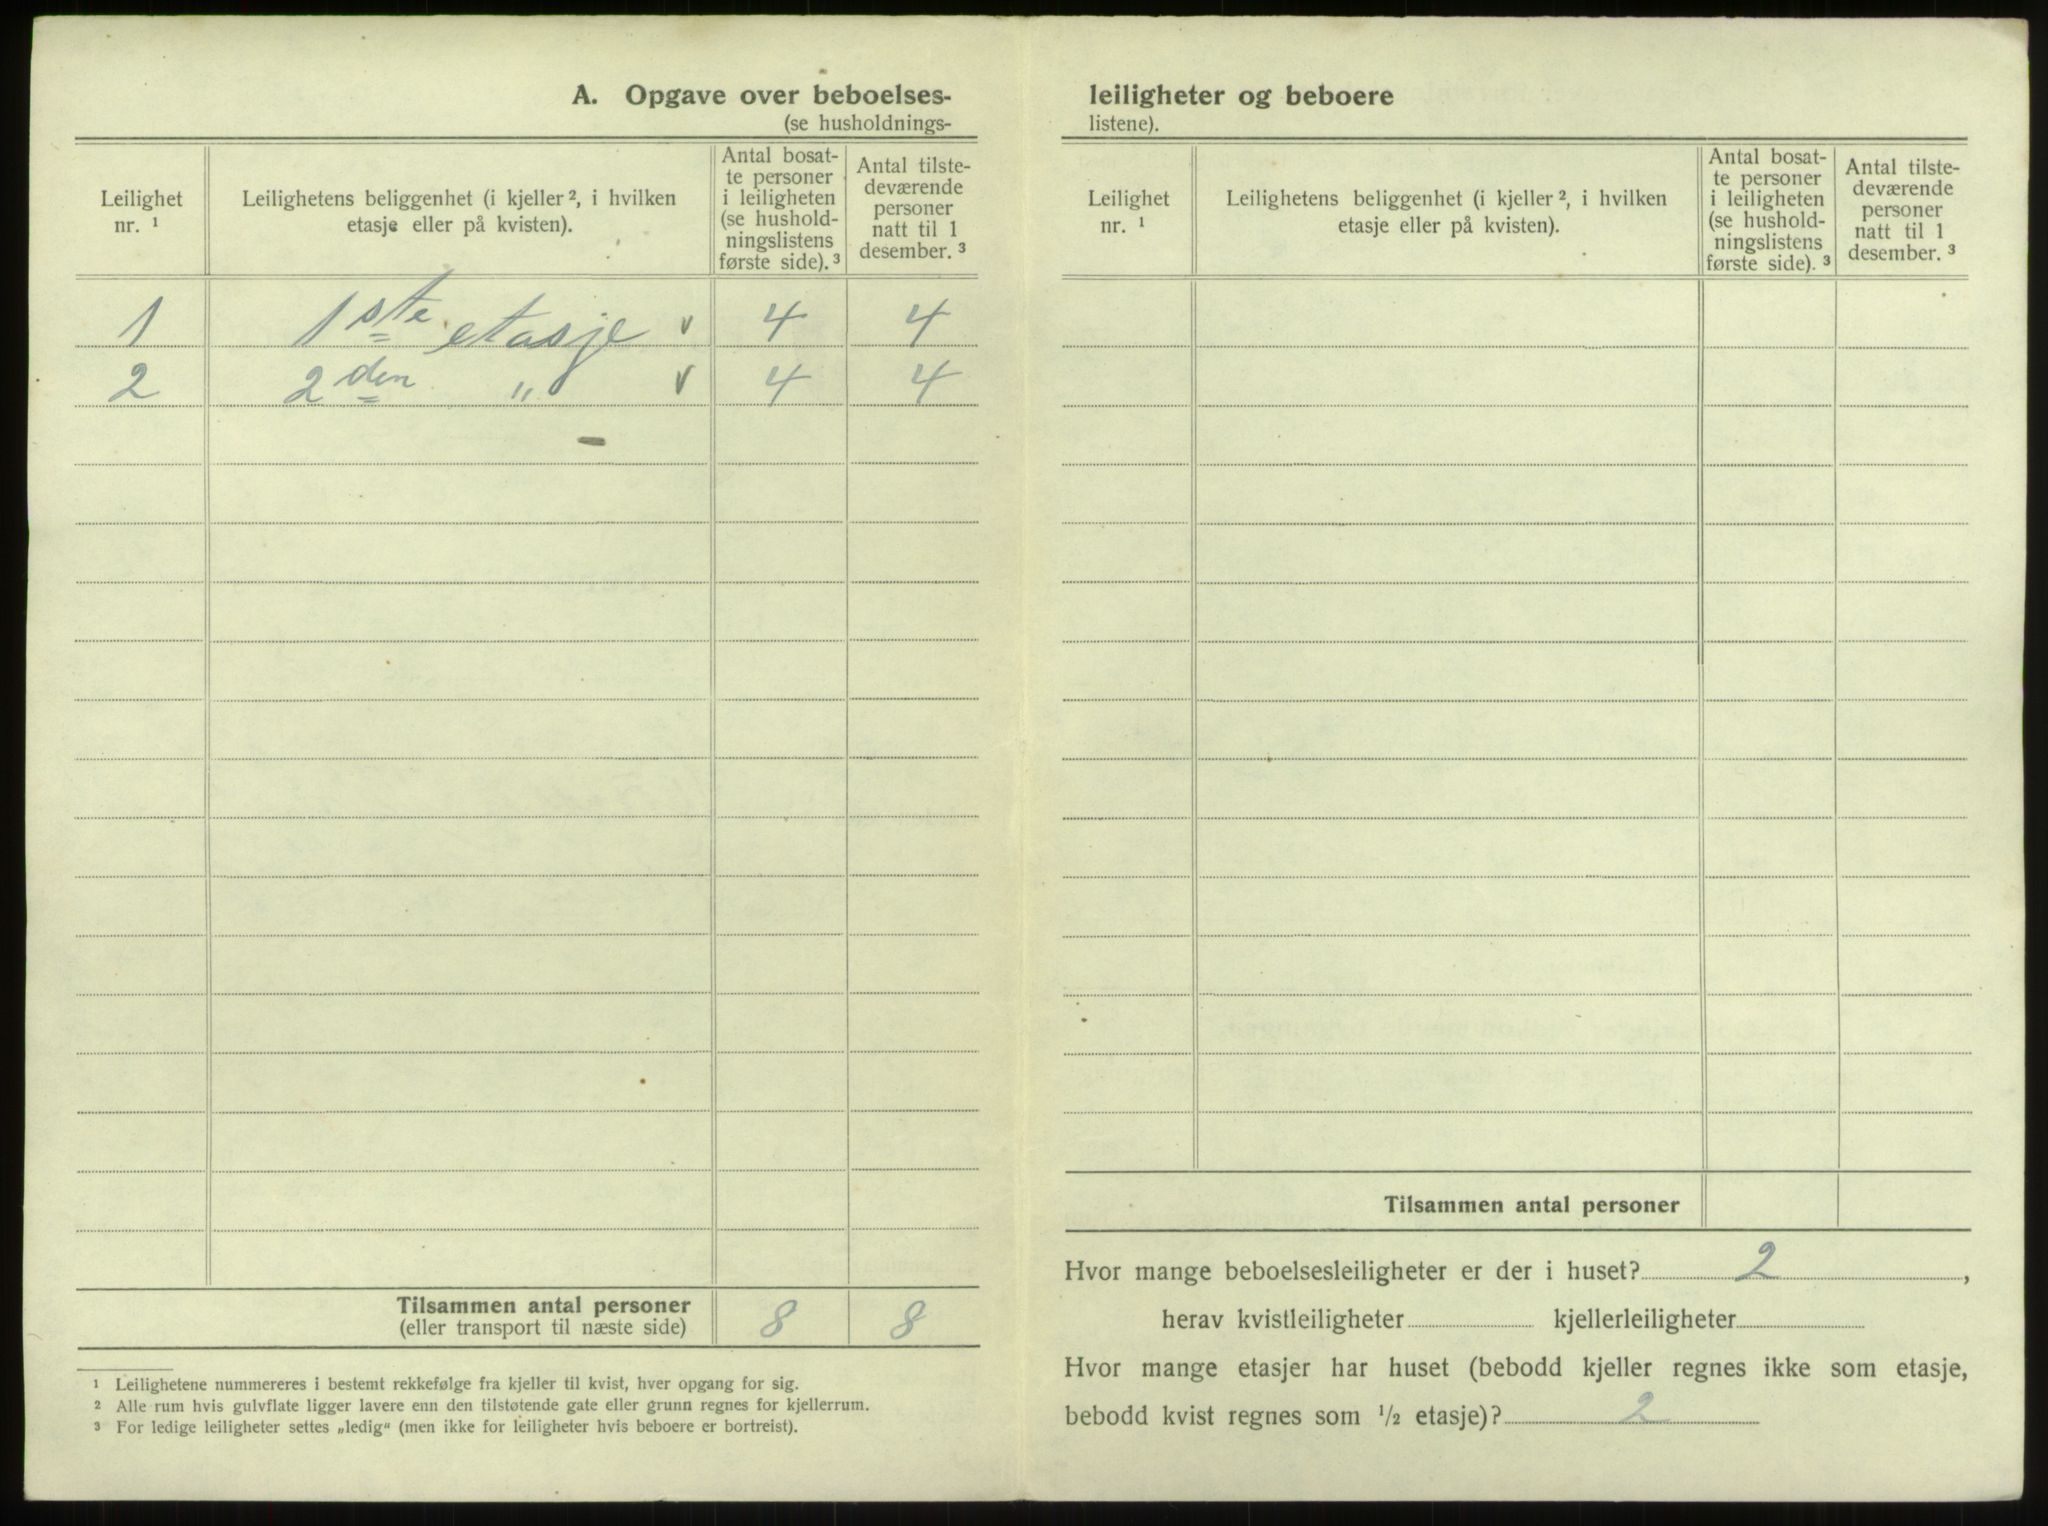 A. Opgave over beboelses-
(se husholdnings-
Leilighet nr. ¹
Leilighetens beliggenhet (i kjeller ², i hvilken etasje eller på kvisten).
Antal bosat-
te personer
i leiligheten
(se hushold-
ningslistens
første side). ³
Antal tilste-
deværende
personer
natt til 1
desember. ³
1 1ste etasje v 4 4
2 2den " v 4 4
Tilsammen antal personer
(eller transport til næste side) 8 8
¹ Leilighetene nummereres i bestemt rekkefølge fra kjeller til kvist, hver opgang for sig.
² Alle rum hvis gulvflate ligger lavere enn den tilstøtende gate eller grunn regnes for kjellerrum.
³ For ledige leiligheter settes „ledig“ (men ikke for leiligheter hvis beboere er bortreist).
leiligheter og beboere
listene).
Leilighet nr. ¹
Leilighetens beliggenhet (i kjeller ², i hvilken etasje eller på kvisten).
Antal bosat-
te personer
i leiligheten
(se hushold-
ningslistens
første side). ³
Antal tilste-
deværende
personer
natt til 1
desember. ³
Tilsammen antal personer
Hvor mange beboelsesleiligheter er der i huset? 2 ,
herav kvistleiligheter kjellerleiligheter
Hvor mange etasjer har huset (bebodd kjeller regnes ikke som etasje,
bebodd kvist regnes som ½ etasje)? 2